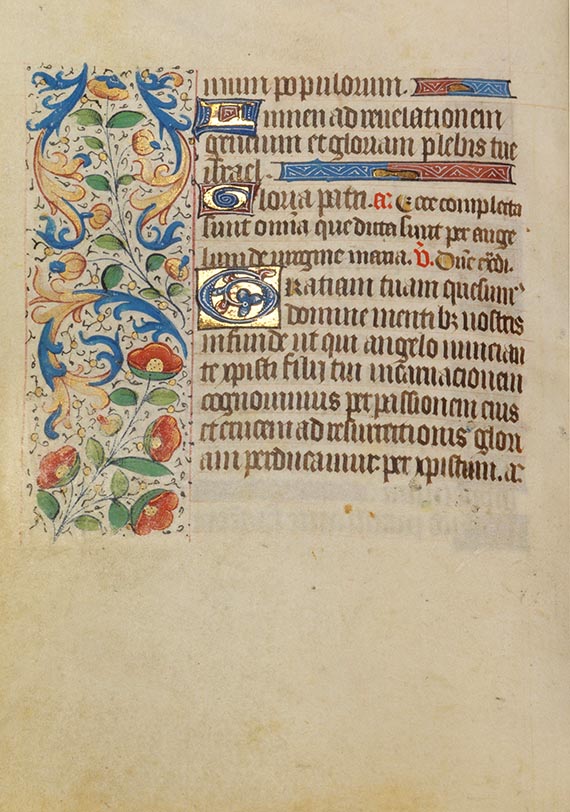 mium populorum.
Lumen ad reuelationem
gencium et gloriam plebis tue
israel.
Gloria patri. a. Ecce completa
sunt omnia que dicta sunt per ange
lum de virgine maria. v. Dne exaudi.
Gratiam tuam quesumus
domine mentibus nostris
infunde ut qui angelo nuncian
te xpisti filii tui incarnacionem
cognouimus per passionem eius
et crucem ad resurrectionis glori
am perducamur. per xpistum. a.